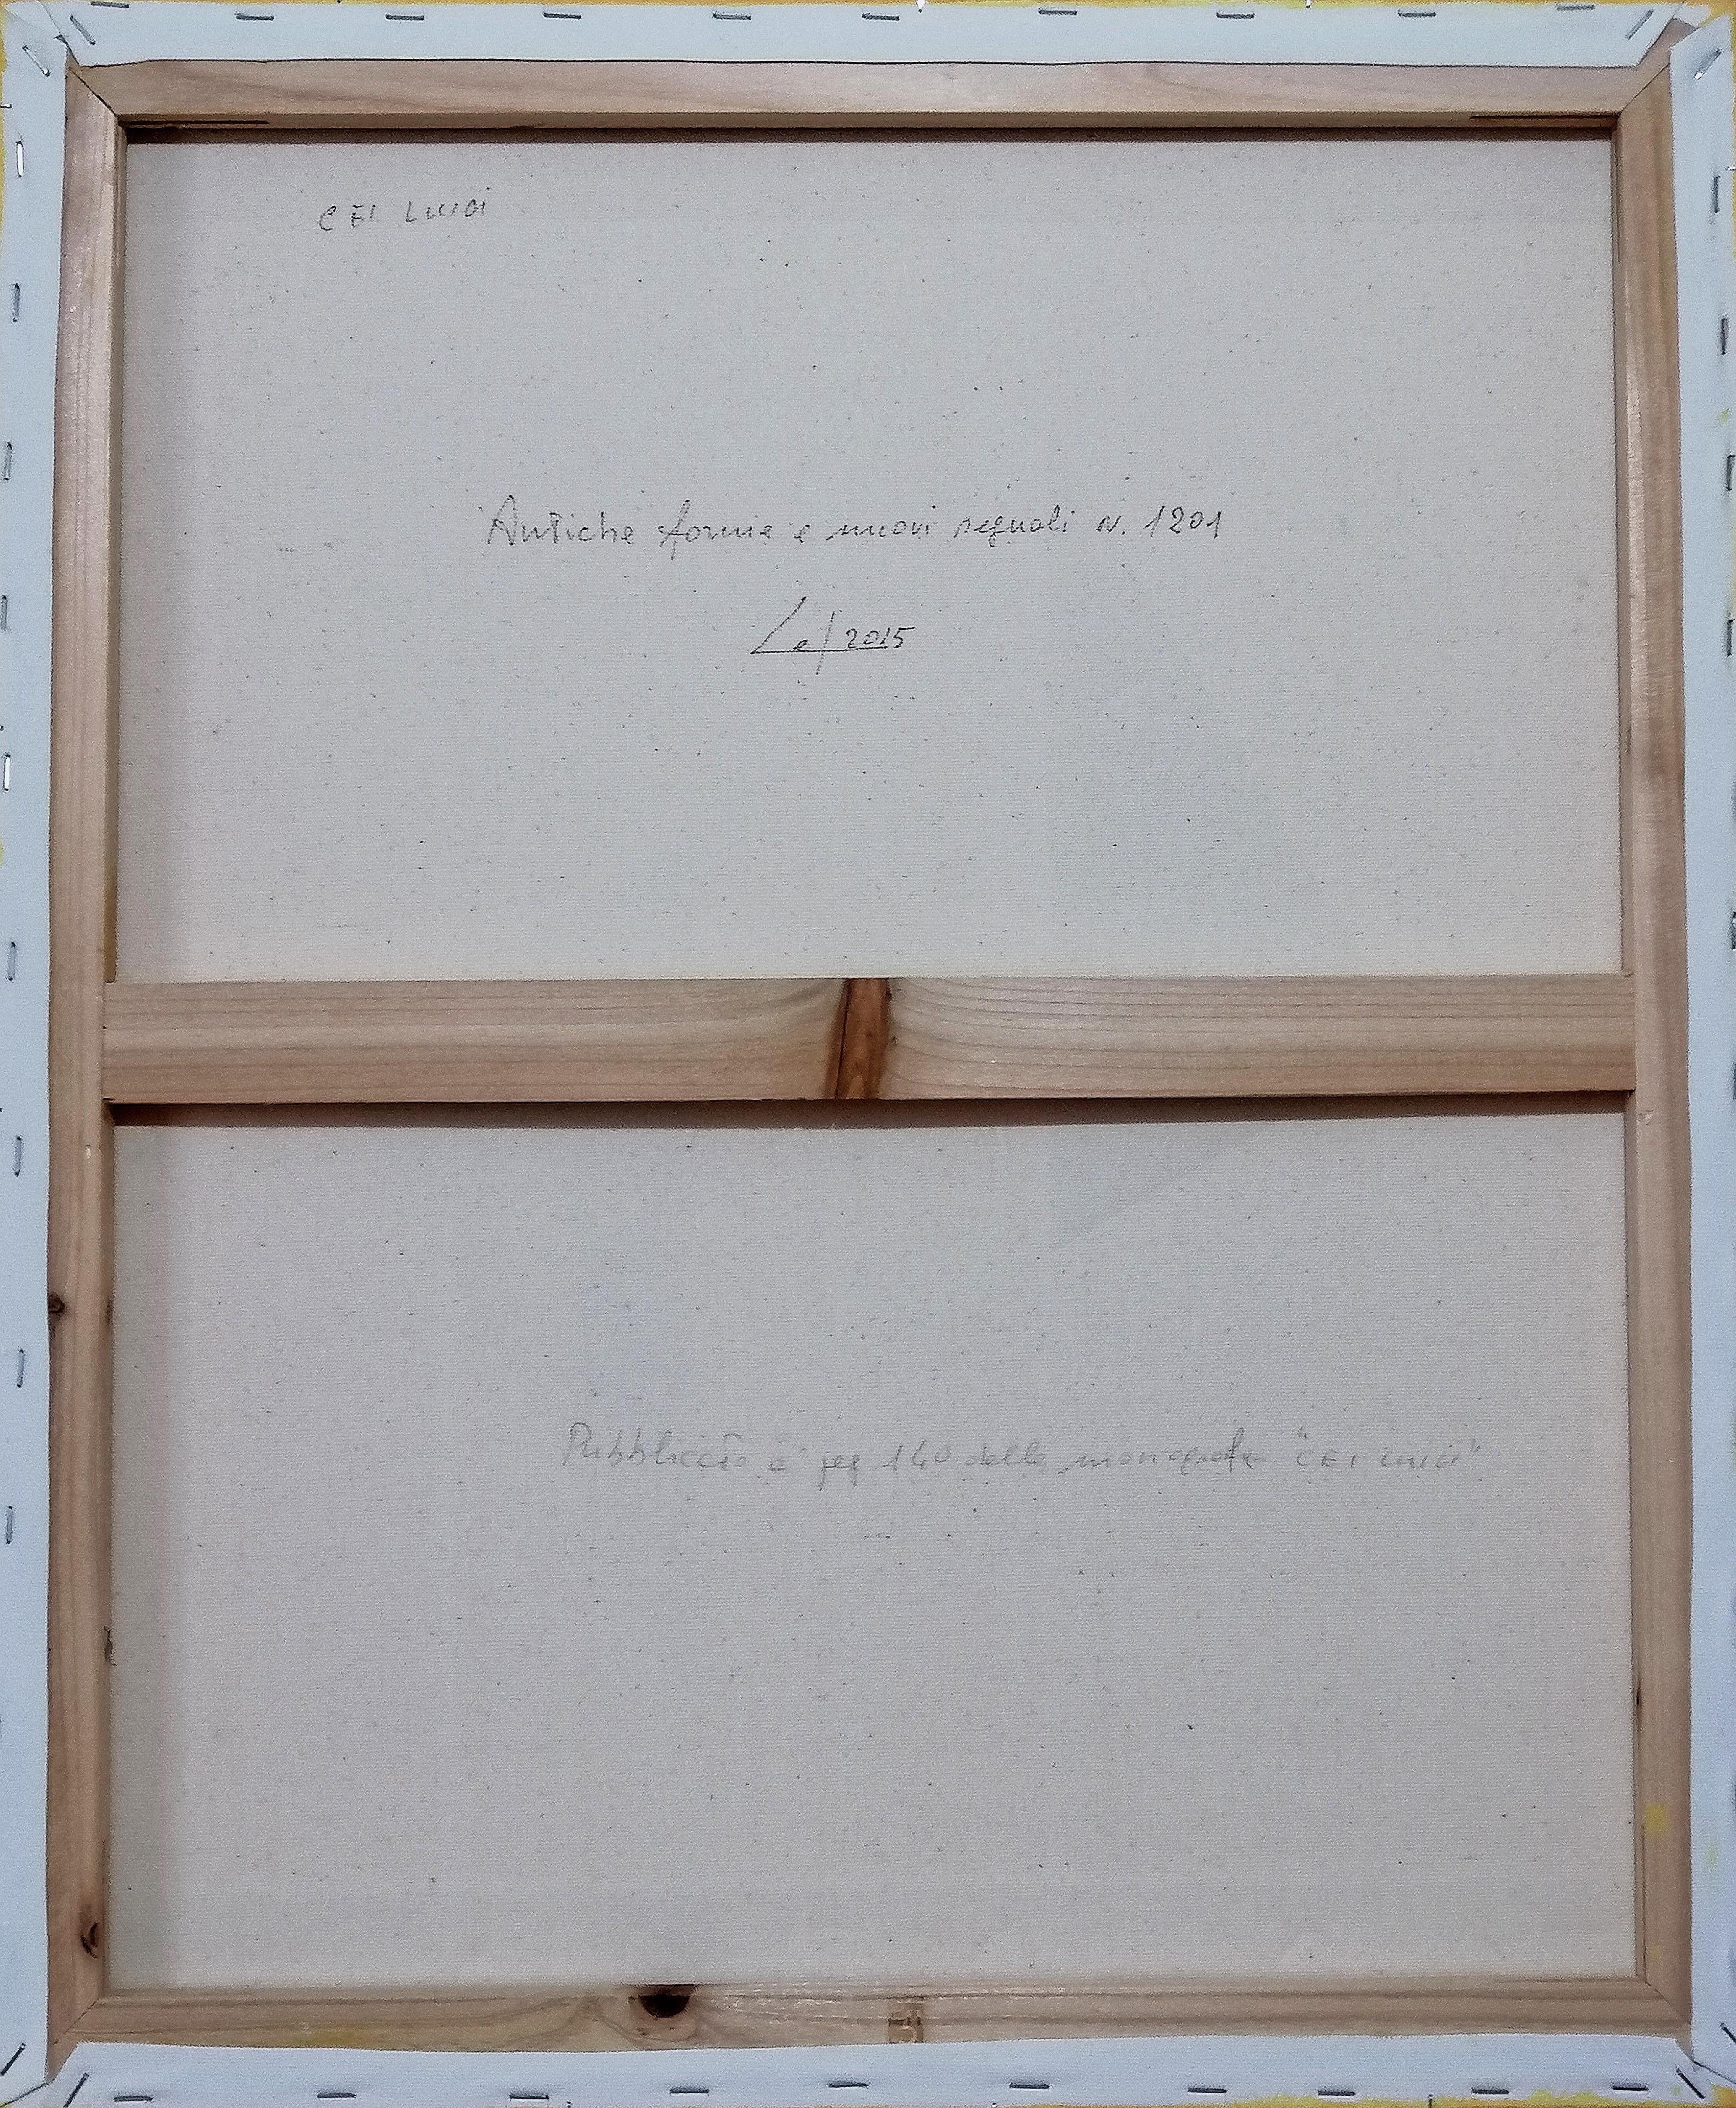 CEI LUIGI
Antiche forme e nuovi segnali N. 1201
2015
Pubblicato a pag 140 della monografia "CEI LUIGI"